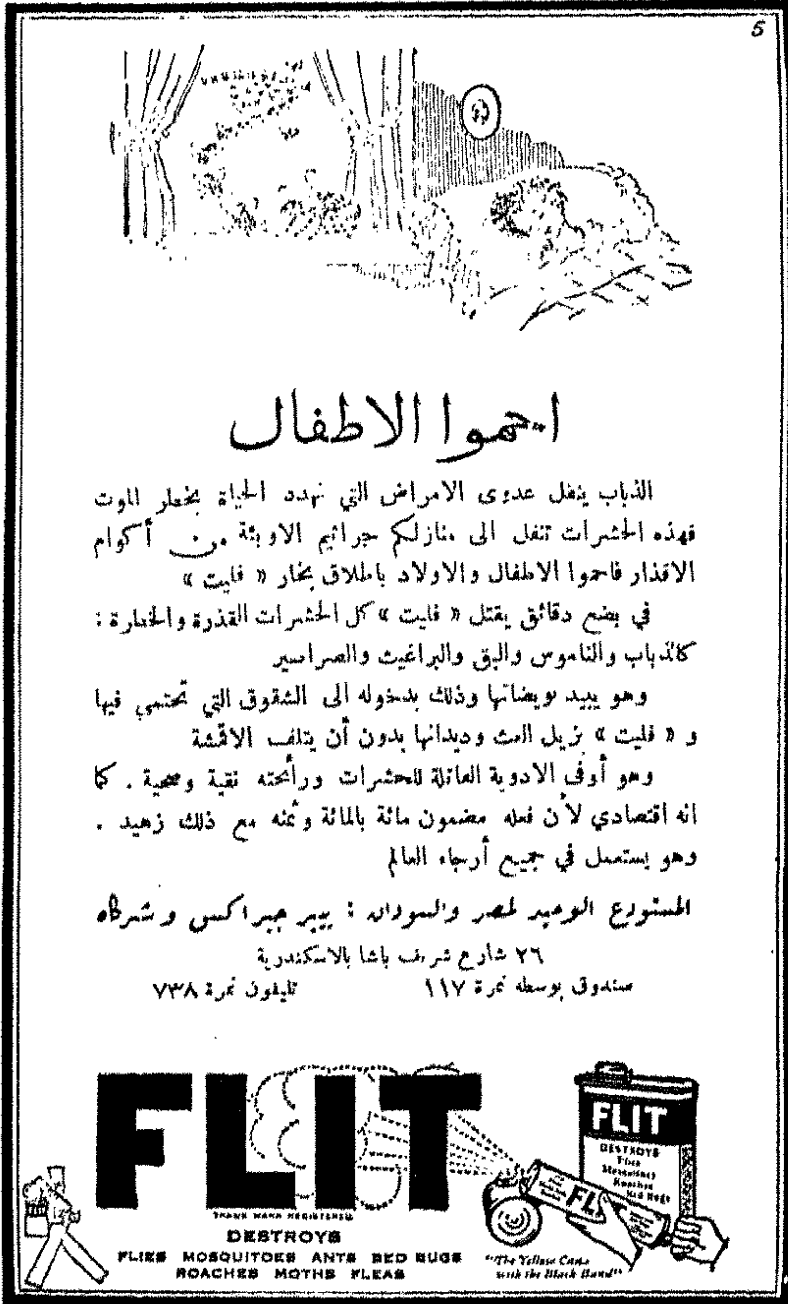 5
احموا الاطفال
الذباب ينقل عدوى الامراض التي تهدد الحياة بخطر الموت
فهذه الحشرات تنقل الى منازلكم جراثيم الاوبئة من أكوام
الاقذار فاحموا الاطفال والاولاد باطلاق بخار « فليت »
في بضع دقائق يقتل « فليت » كل الحشرات القذرة والضارة :
كالذباب والناموس والبق والبراغيث والصراسير
وهو يبيد بويضاتها وذلك بدخوله الى الشقوق التي تحتمي فيها
و « فليت » يزيل العث وديدانها بدون أن يتلف الاقمشة
وهو أوفى الادوية القاتلة للحشرات ورائحته نقية وصحية . كما
انه اقتصادي لأن فعله مضمون مائة بالمائة وثمنه مع ذلك زهيد .
وهو يستعمل في جميع أرجاء العالم
المستودع الوحيد لمصر والسودان : بيبر جبراكس وشركاه
٢٦ شارع شريف باشا بالاسكندرية
صندوق بوسطه نمرة ١١٧ تليفون نمرة ٧٣٨
FLIT
TRADE MARK REGISTERED
DESTROYS
FLIES MOSQUITOES ANTS BED BUGS
ROACHES MOTHS FLEAS
FLIT
DESTROYS
Flies
Mosquitoes
Roaches
Bed Bugs
"The Yellow Can
with the Black Band"